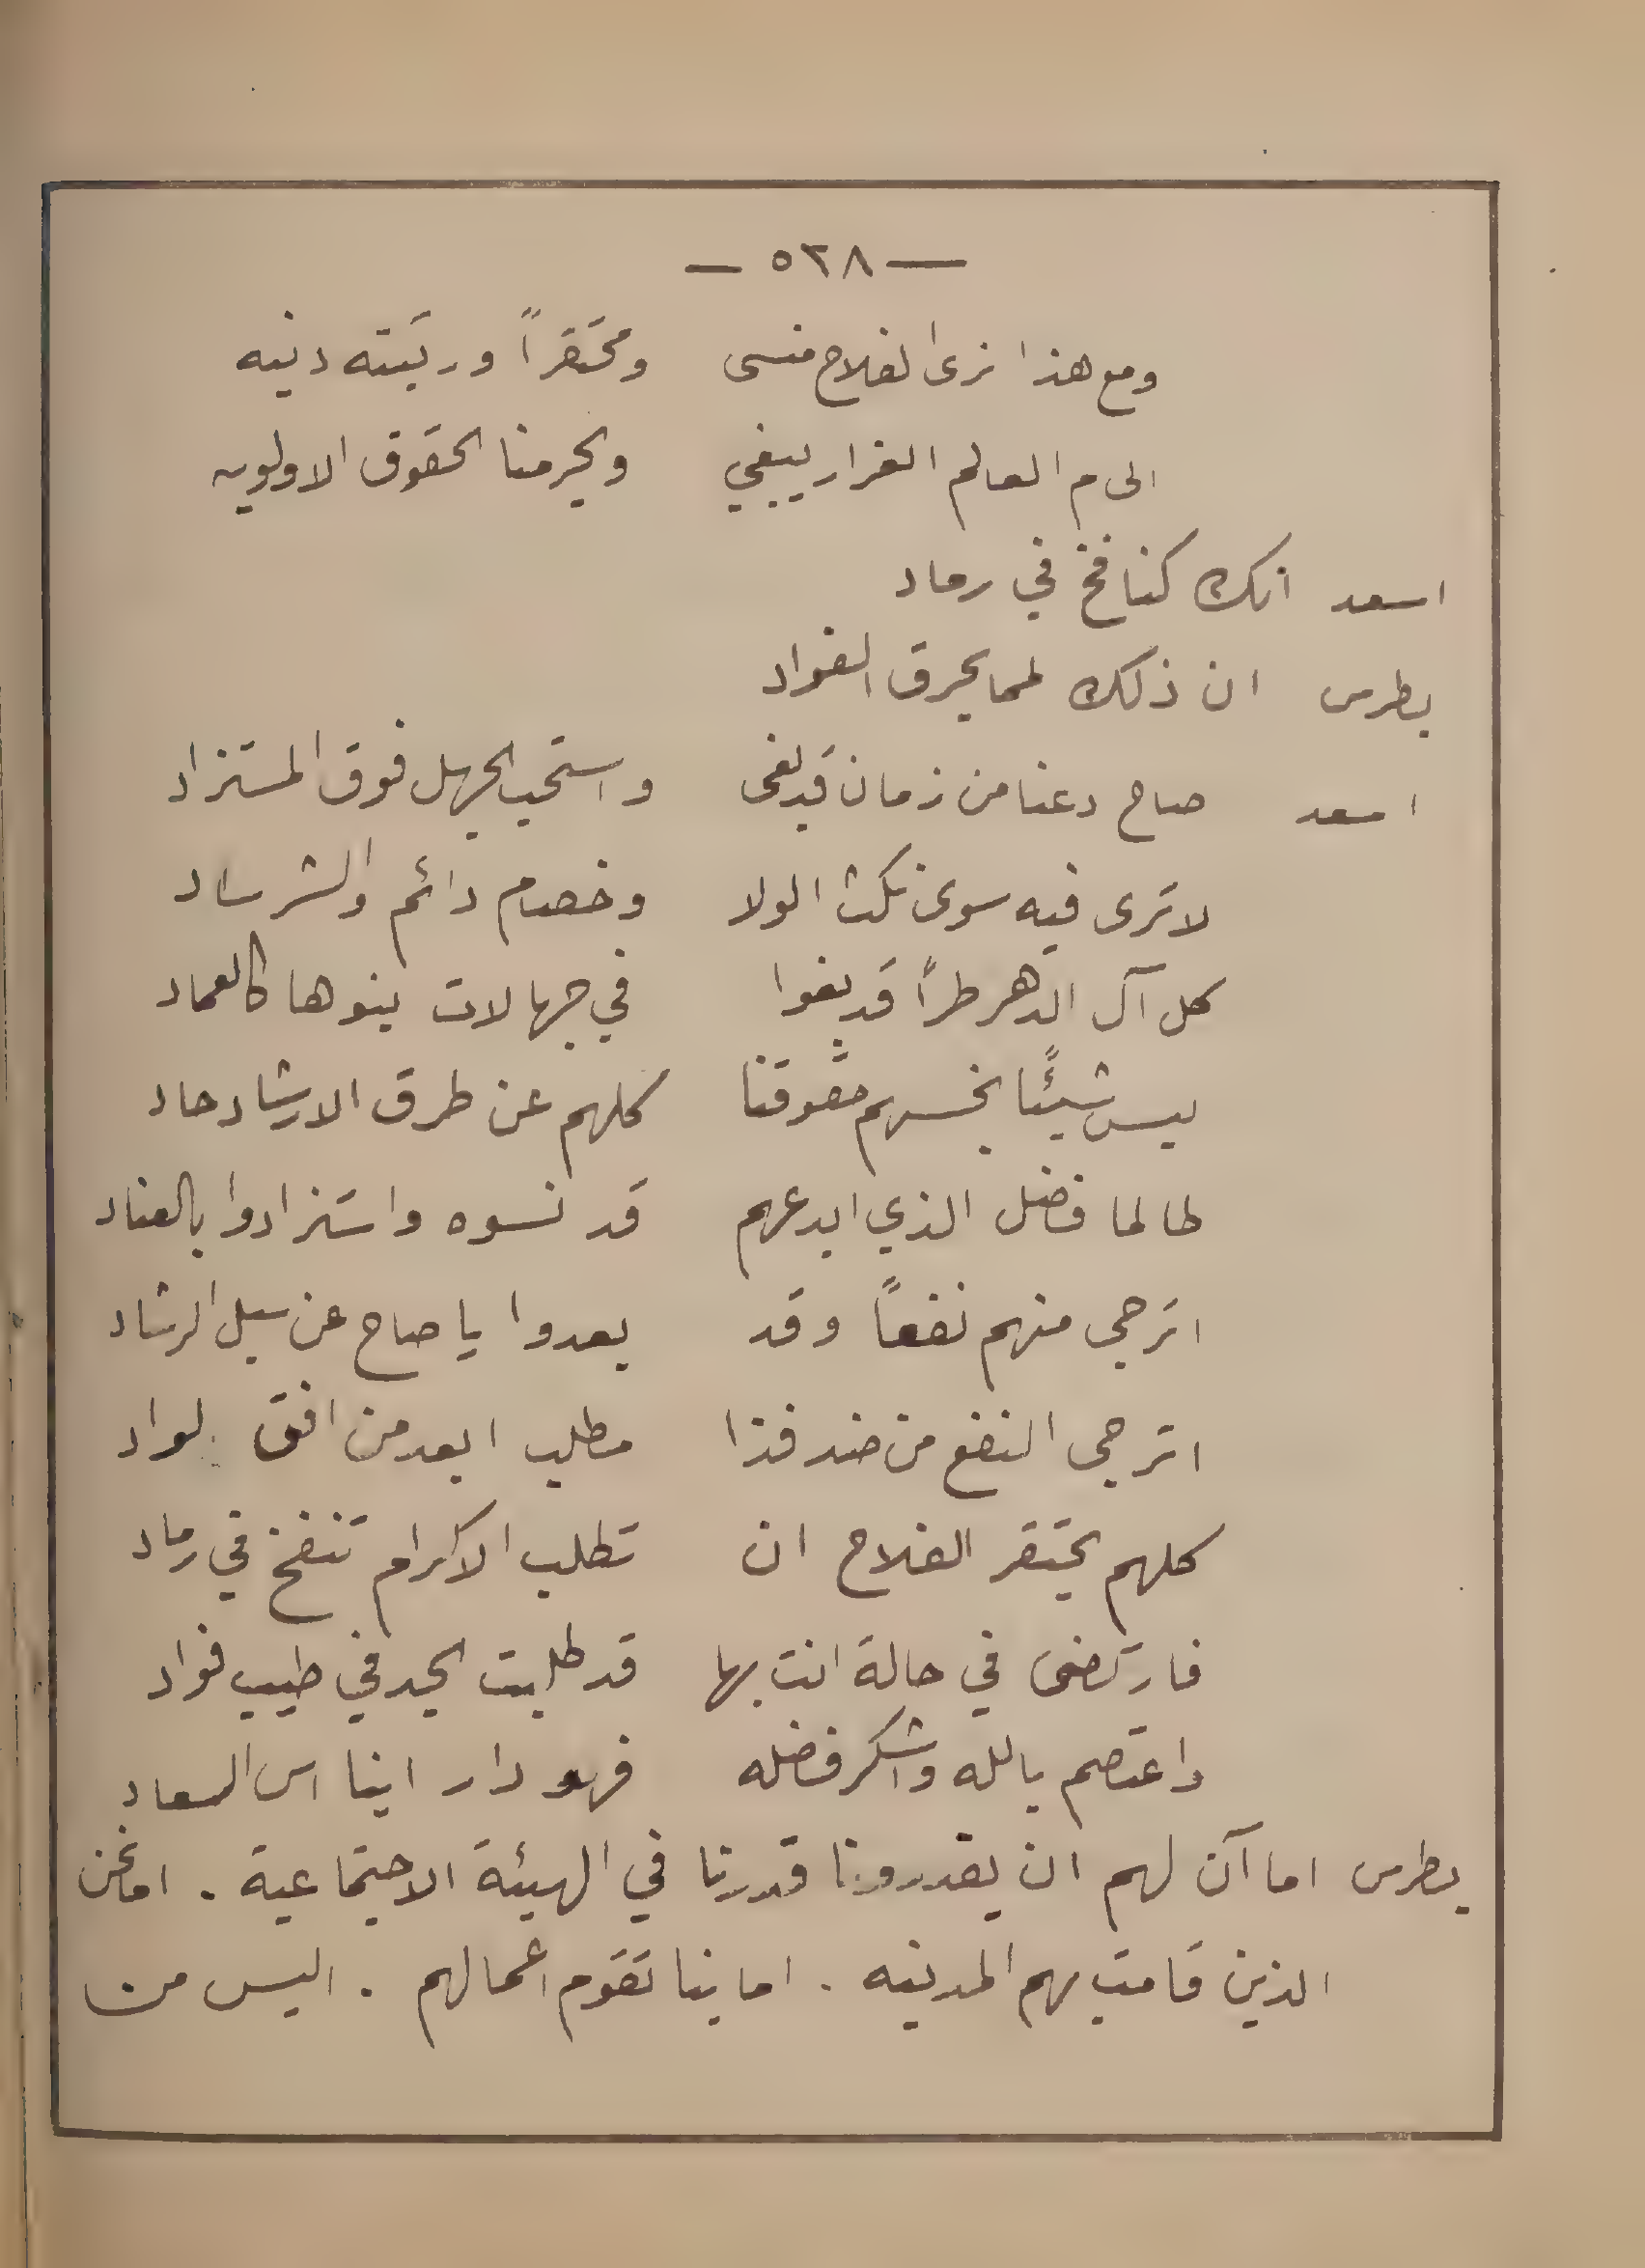 — ٥٢٨ —
ومع هذا نرى الفلاح منسى ومحتقراً ورتبته دنيه
الى م العالم الغرار يبغي ويحرمنا الحقوق الاولويه
اسعد انك كنافخ في رماد
بطرس ان ذلك لمما يحرق الفواد
اسعد صاح دعنا من زمان قد بغى واستحب الجهل فوق المستزاد
لا ترى فيه سوى نكث الولا وخصام دائم والشر ساد
كل آل الدهر طراً قد بغوا في جهالات بنوها كالعماد
ليس شيئاً بخسهم حقوقنا كلهم عن طرق الارشاد حاد
طالما فضل الذي ابدعهم قد نسوه واستزادوا بالعناد
اترجى منهم نفعاً وقد بعدوا يا صاح عن سبل الرشاد
اترجى النفع من ضد فذا مطلب ابعد من افق لواد
كلهم يحتقر الفلاح ان تطلب الاكرام تنفخ في رماد
فارتضى في حالة انت بها قد طلبت المجد في طيب فواد
واعتصم بالله واشكر فضله فهو دار اينا اس السعاد
بطرس اما آن لهم ان يقدرونا قدرنا في الهيئة الاجتماعية . اما نحن
الذين قامت بهم المدنيه . اما بنا تقوم اعمالهم . اليس من